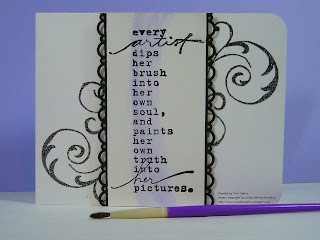 every
artist
dips
her
brush
into
her
own
soul,
and
paints
her
own
truth
into
her
pictures.